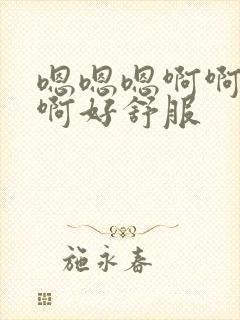 嗯嗯嗯啊啊
啊好舒服
施永春